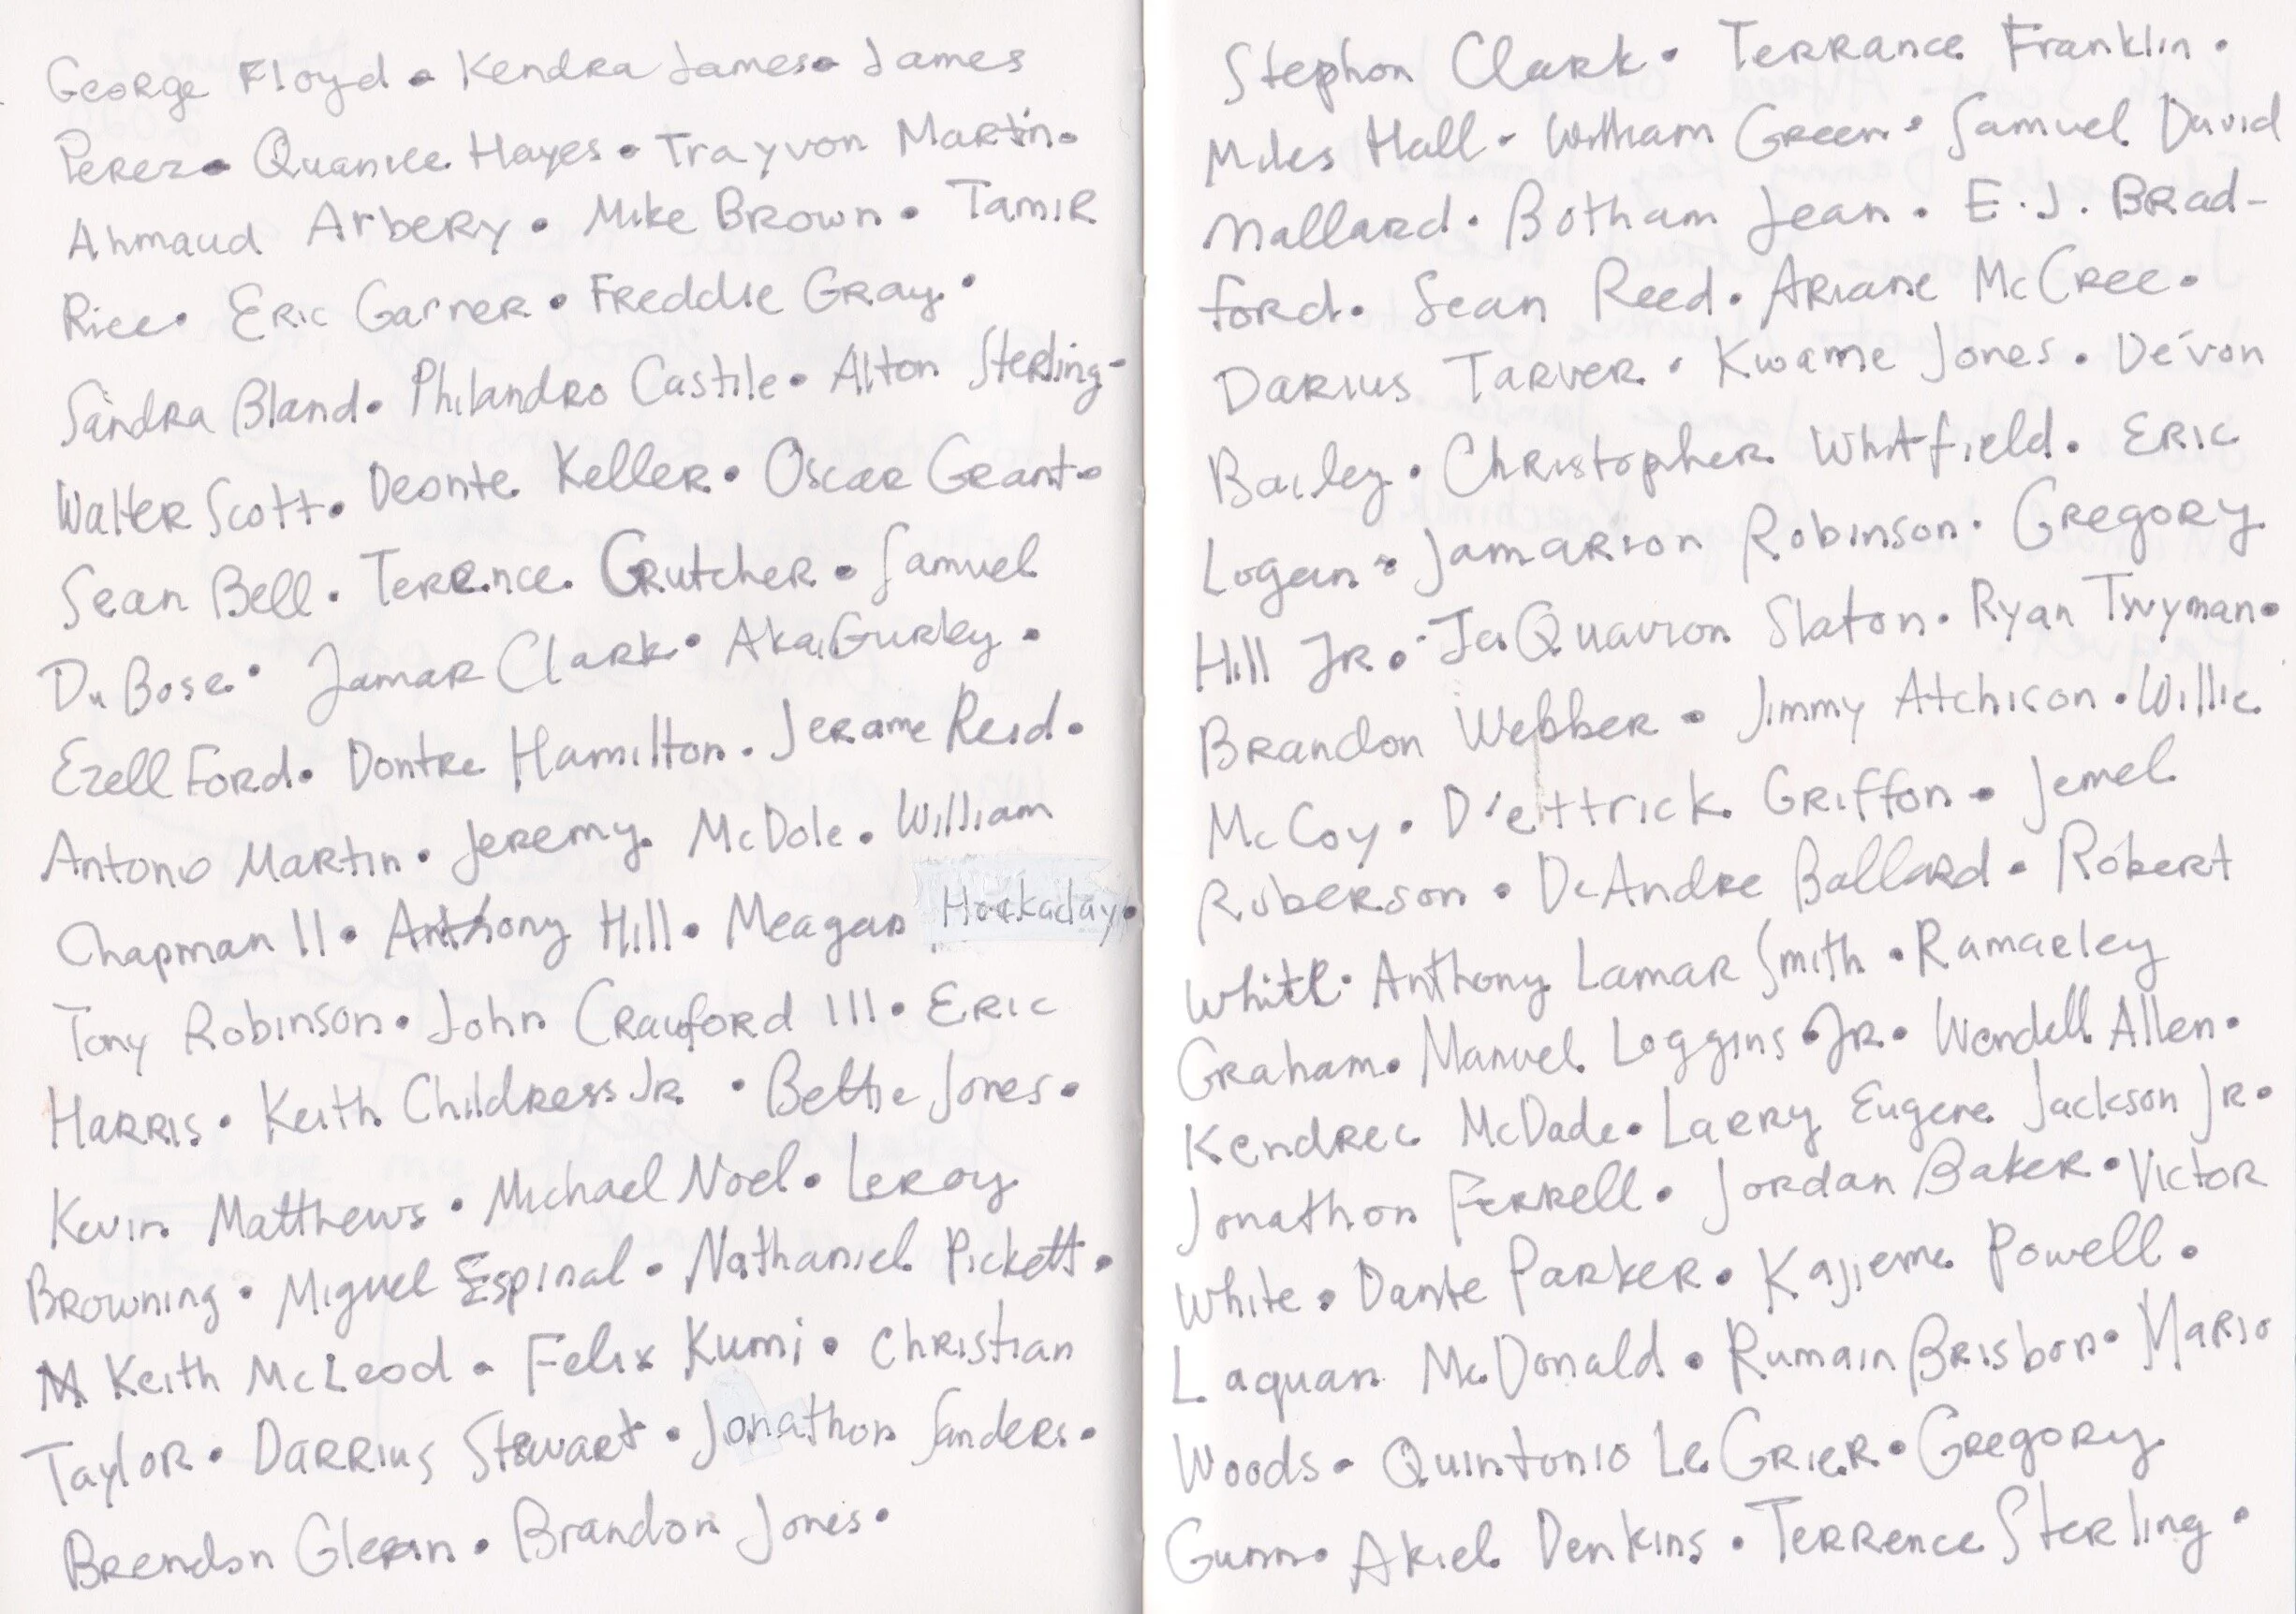 George Floyd • Kendra James • James
Perez • Quanice Hayes • Trayvon Martin •
Ahmaud Arbery • Mike Brown • Tamir
Rice • Eric Garner • Freddie Gray •
Sandra Bland • Philandro Castile • Alton Sterling -
Walter Scott • Deonte Keller • Oscar Grant •
Sean Bell • Terrence Crutcher • Samuel
DuBose • Jamar Clark • Akai Gurley •
Ezell Ford • Dontre Hamilton • Jerame Reid •
Antonio Martin • Jeremy McDole • William
Chapman II • Anthony Hill • Meagan Hockaday •
Tony Robinson • John Crawford III • Eric
Harris • Keith Childress Jr • Bettie Jones •
Kevin Matthews • Michael Noel • Leroy
Browning • Miguel Espinal • Nathaniel Pickett •
Keith McLeod • Felix Kumi • Christian
Taylor • Darrius Stewart • Jonathon Sanders •
Brendon Glenn • Brandon Jones •
Stephon Clark • Terrance Franklin •
Miles Hall - William Green • Samuel David
Mallard • Botham Jean • E.J. Brad-
ford • Sean Reed • Ariane McCree •
Darius Tarver • Kwame Jones • De'von
Bailey • Christopher Whitfield • Eric
Logan • Jamarion Robinson • Gregory
Hill Jr • JaQuavion Slaton • Ryan Twyman •
Brandon Webber • Jimmy Atchison • Willie
McCoy • D'ettrick Griffon • Jemel
Roberson • DeAndre Ballard • Robert
White • Anthony Lamar Smith • Ramarley
Graham • Manuel Loggins Jr • Wendell Allen •
Kendrec McDade • Larry Eugene Jackson Jr •
Jonathon Ferrell • Jordan Baker • Victor
White • Dante Parker • Kajieme Powell •
Laquan McDonald • Rumain Brisbon • Mario
Woods • Quintonio LeGrier • Gregory
Gunn • Akiel Denkins • Terrence Sterling •